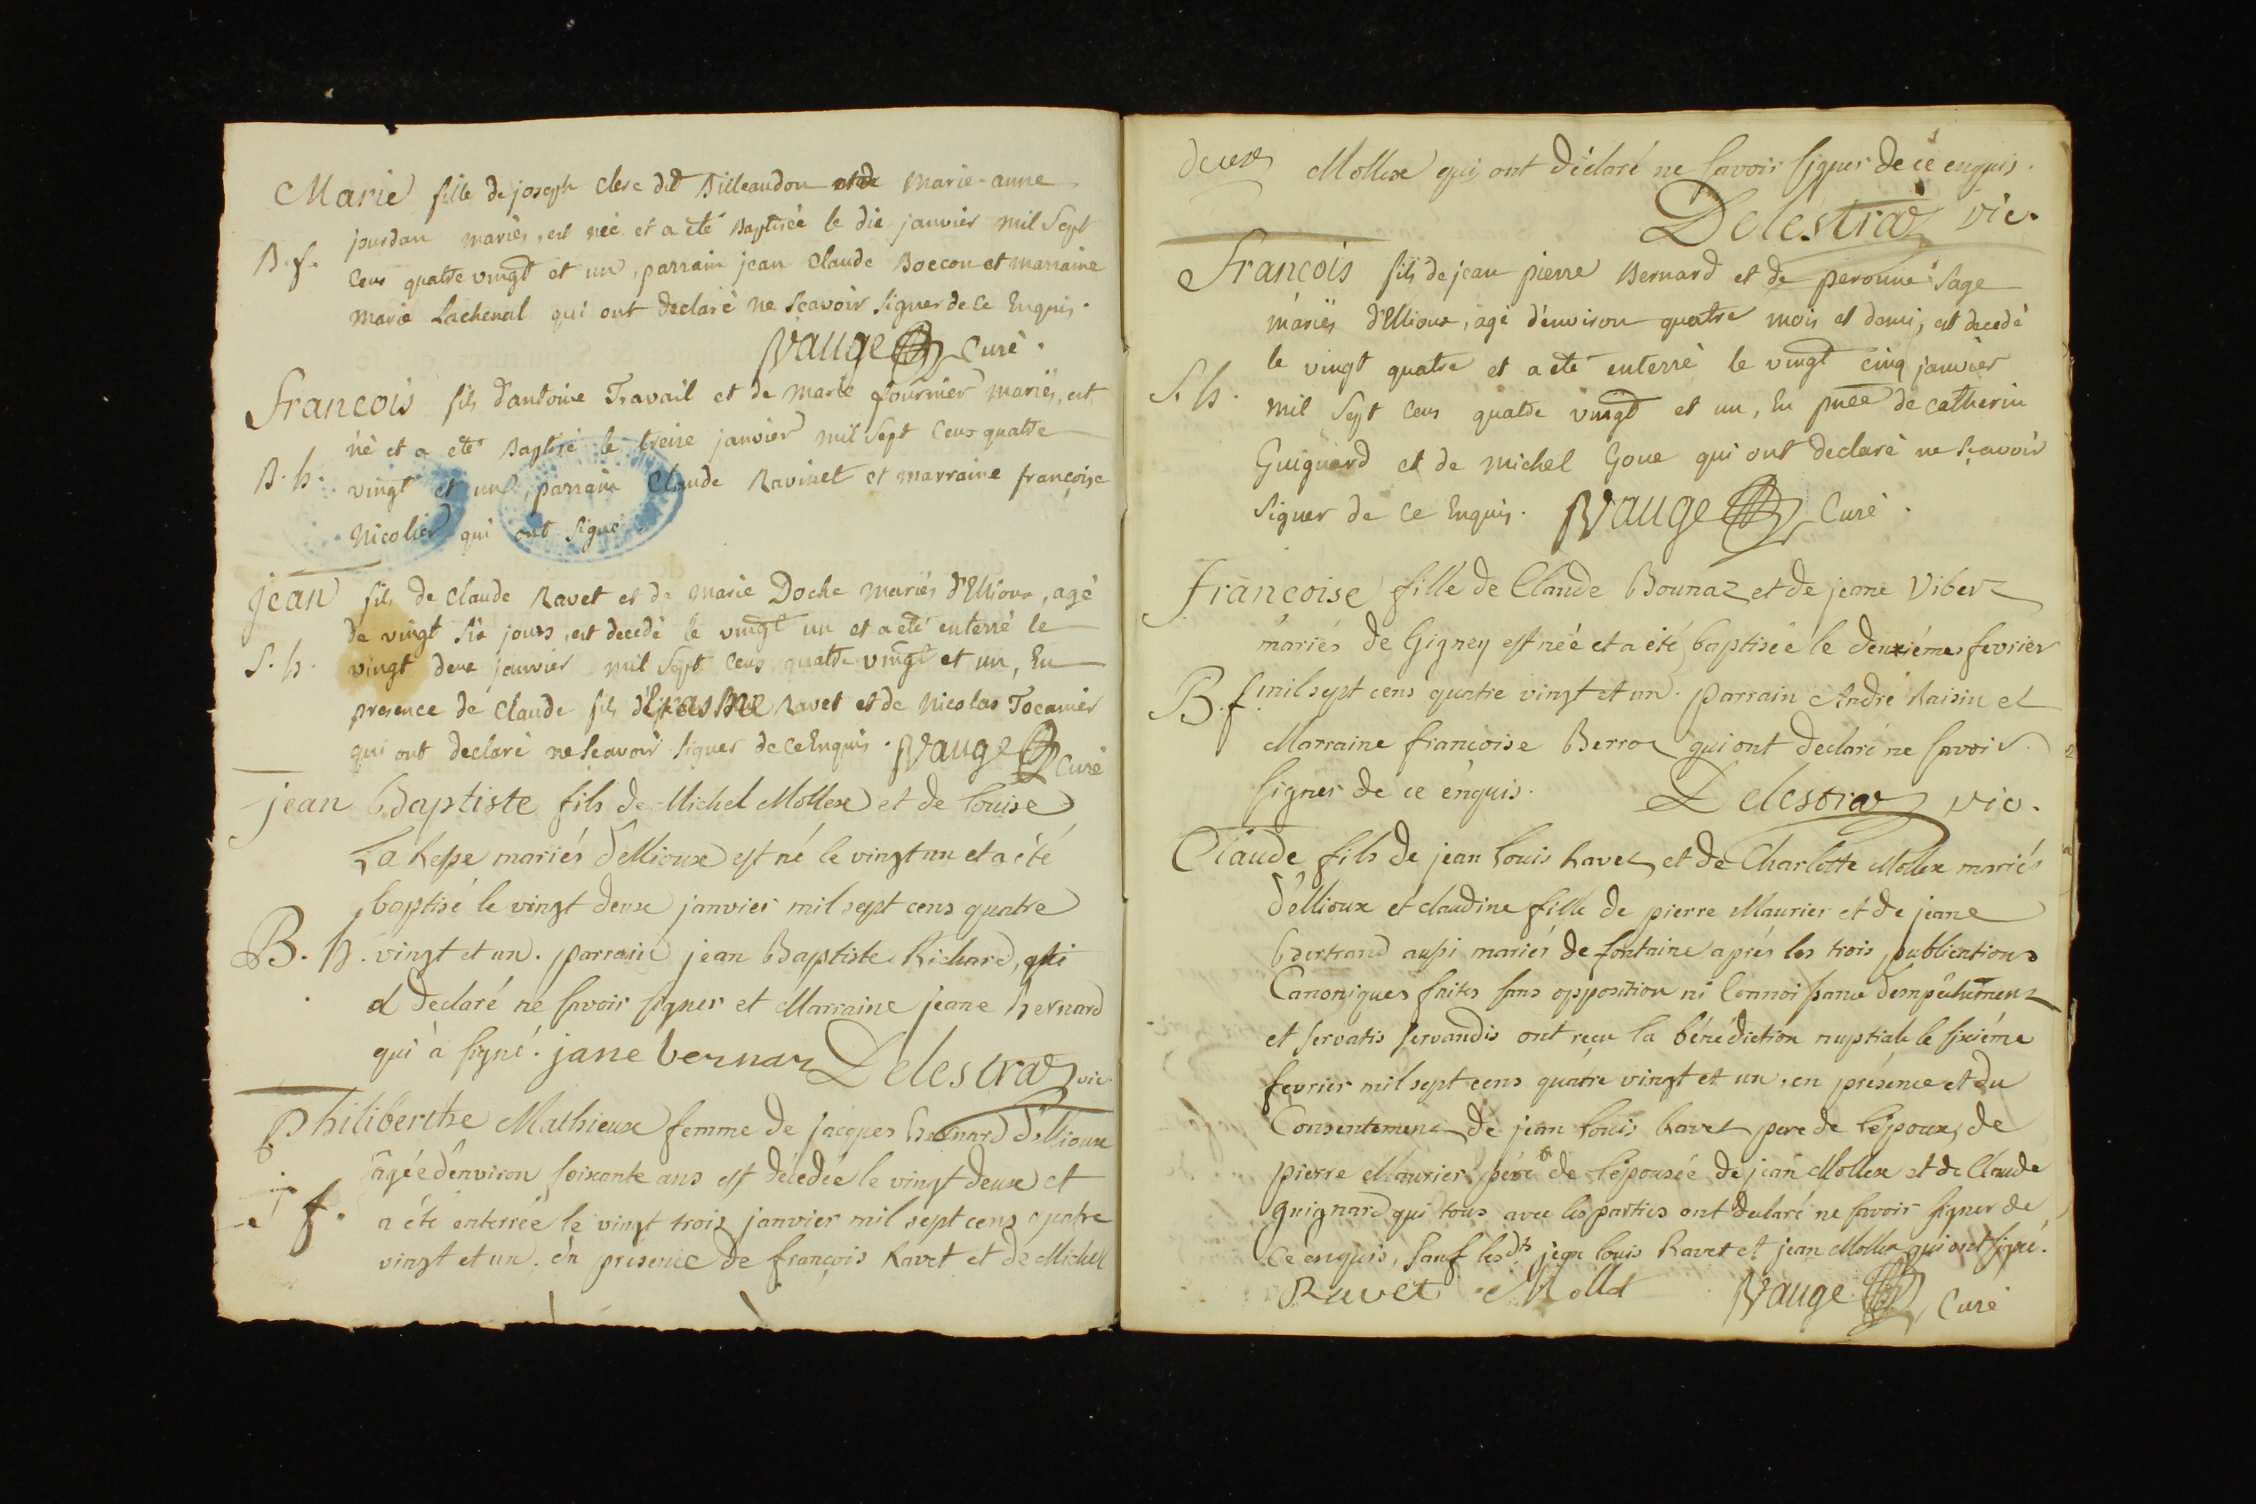 Marie fille de joseph clerc dit Billeaudon et de marie-anne
jourdan mariés, est née et a eté Baptisée le dix janvier mil Sept
B. f.
Cens quatre vingt et un, parrain jean Claude Boccon et marraine
marie Lachenal qui ont declaré ne Sçavoir Signer de Ce Enquis.
Vauge Curé.
Francois fils d'antoine Travail et de marie fournier mariés, est
né et a eté Baptisé le treise janvier mil Sept Cens quatre
B. h.
vingt et un, parrain Claude Ravinet et marraine françoise
Nicolier qui ont Signé
jean fils de Claude Ravet et de marie Doche mariés d'Ellioux, agé
de vingt Six jours, est decedé le vingt un et a eté enterré le
S. h.
vingt deux janvier mil Sept Cens quatre vingt et un, En
presence de Claude fils d'Erasme Ravet et de Nicolas Tocanier
qui ont declaré ne Scavoir Signer de Ce Enquis. Vauge Curé
jean baptiste fils de Michel Mollex et de Louise
La Kesse mariés d'ellioux est né le vingt un et a été
baptisé le vingt deux janvier mil sept cens quatre
B. h.
vingt et un. parrain jean Baptiste Richard, qui
a declaré ne savoir signer et Marraine jeane bernard
qui à signé. jane bernar Delestraz vic
Philiberthe Mathieux femme de jacques bernard d'ellioux
agée d'environ soixante ans est décedée le vingt deux et
f.
a été enterrée le vingt trois janvier mil sept cens quatre
vingt et un. en presence de françois Ravet et de Michel
deux Mollex qui ont déclaré ne savoir signer de ce enquis.
Delestraz vic.
François fils de jean pierre Bernard et de peronne Sage
mariés d'Ellioux, agé d'environ quatre mois et demi, est decedé
le vingt quatre et a eté enterré le vingt cinq janvier
S. h.
mil Sept Cens quatre vingt et un, En pnce de catherin
Guignard et de michel Goux qui ont declaré ne Sçavoir
Signer de Ce Enquis. Vauge Curé.
françoise fille de Claude Bounaz et de jeane Vibert
mariés de Gigney est née et a été baptisée le deuxiéme fevrier
B. f.
mil sept cens quatre vingt et un. parrain André Raisin et
Marraine françoise Berroz qui ont declaré ne savoir
signer de ce enquis. Delestraz vic.
Claude fils de jean Louis Ravet et de Charlotte Mollex mariés
d'ellioux et claudine fille de pierre Maurier et de jeane
bertrand aussi mariés de fontaine aprés les trois publications
Canoniques faites sans opposition ni Connoissance d'empêchement
et servatis servandis ont reçu la bénédiction nuptiale le sixiéme
fevrier mil sept cens quatre vingt et un, en présence et du
Consentement de jean Louis Ravet pere de L'époux, de
pierre Maurier pére de L'épousée de jean Mollex et de Claude
guignard qui tous avec les parties ont declaré ne savoir signer de
Ce enquis, sauf lesdts jean louis Ravet et jean Mollex qui ont signé.
Ravet Mollet Vauge Curé